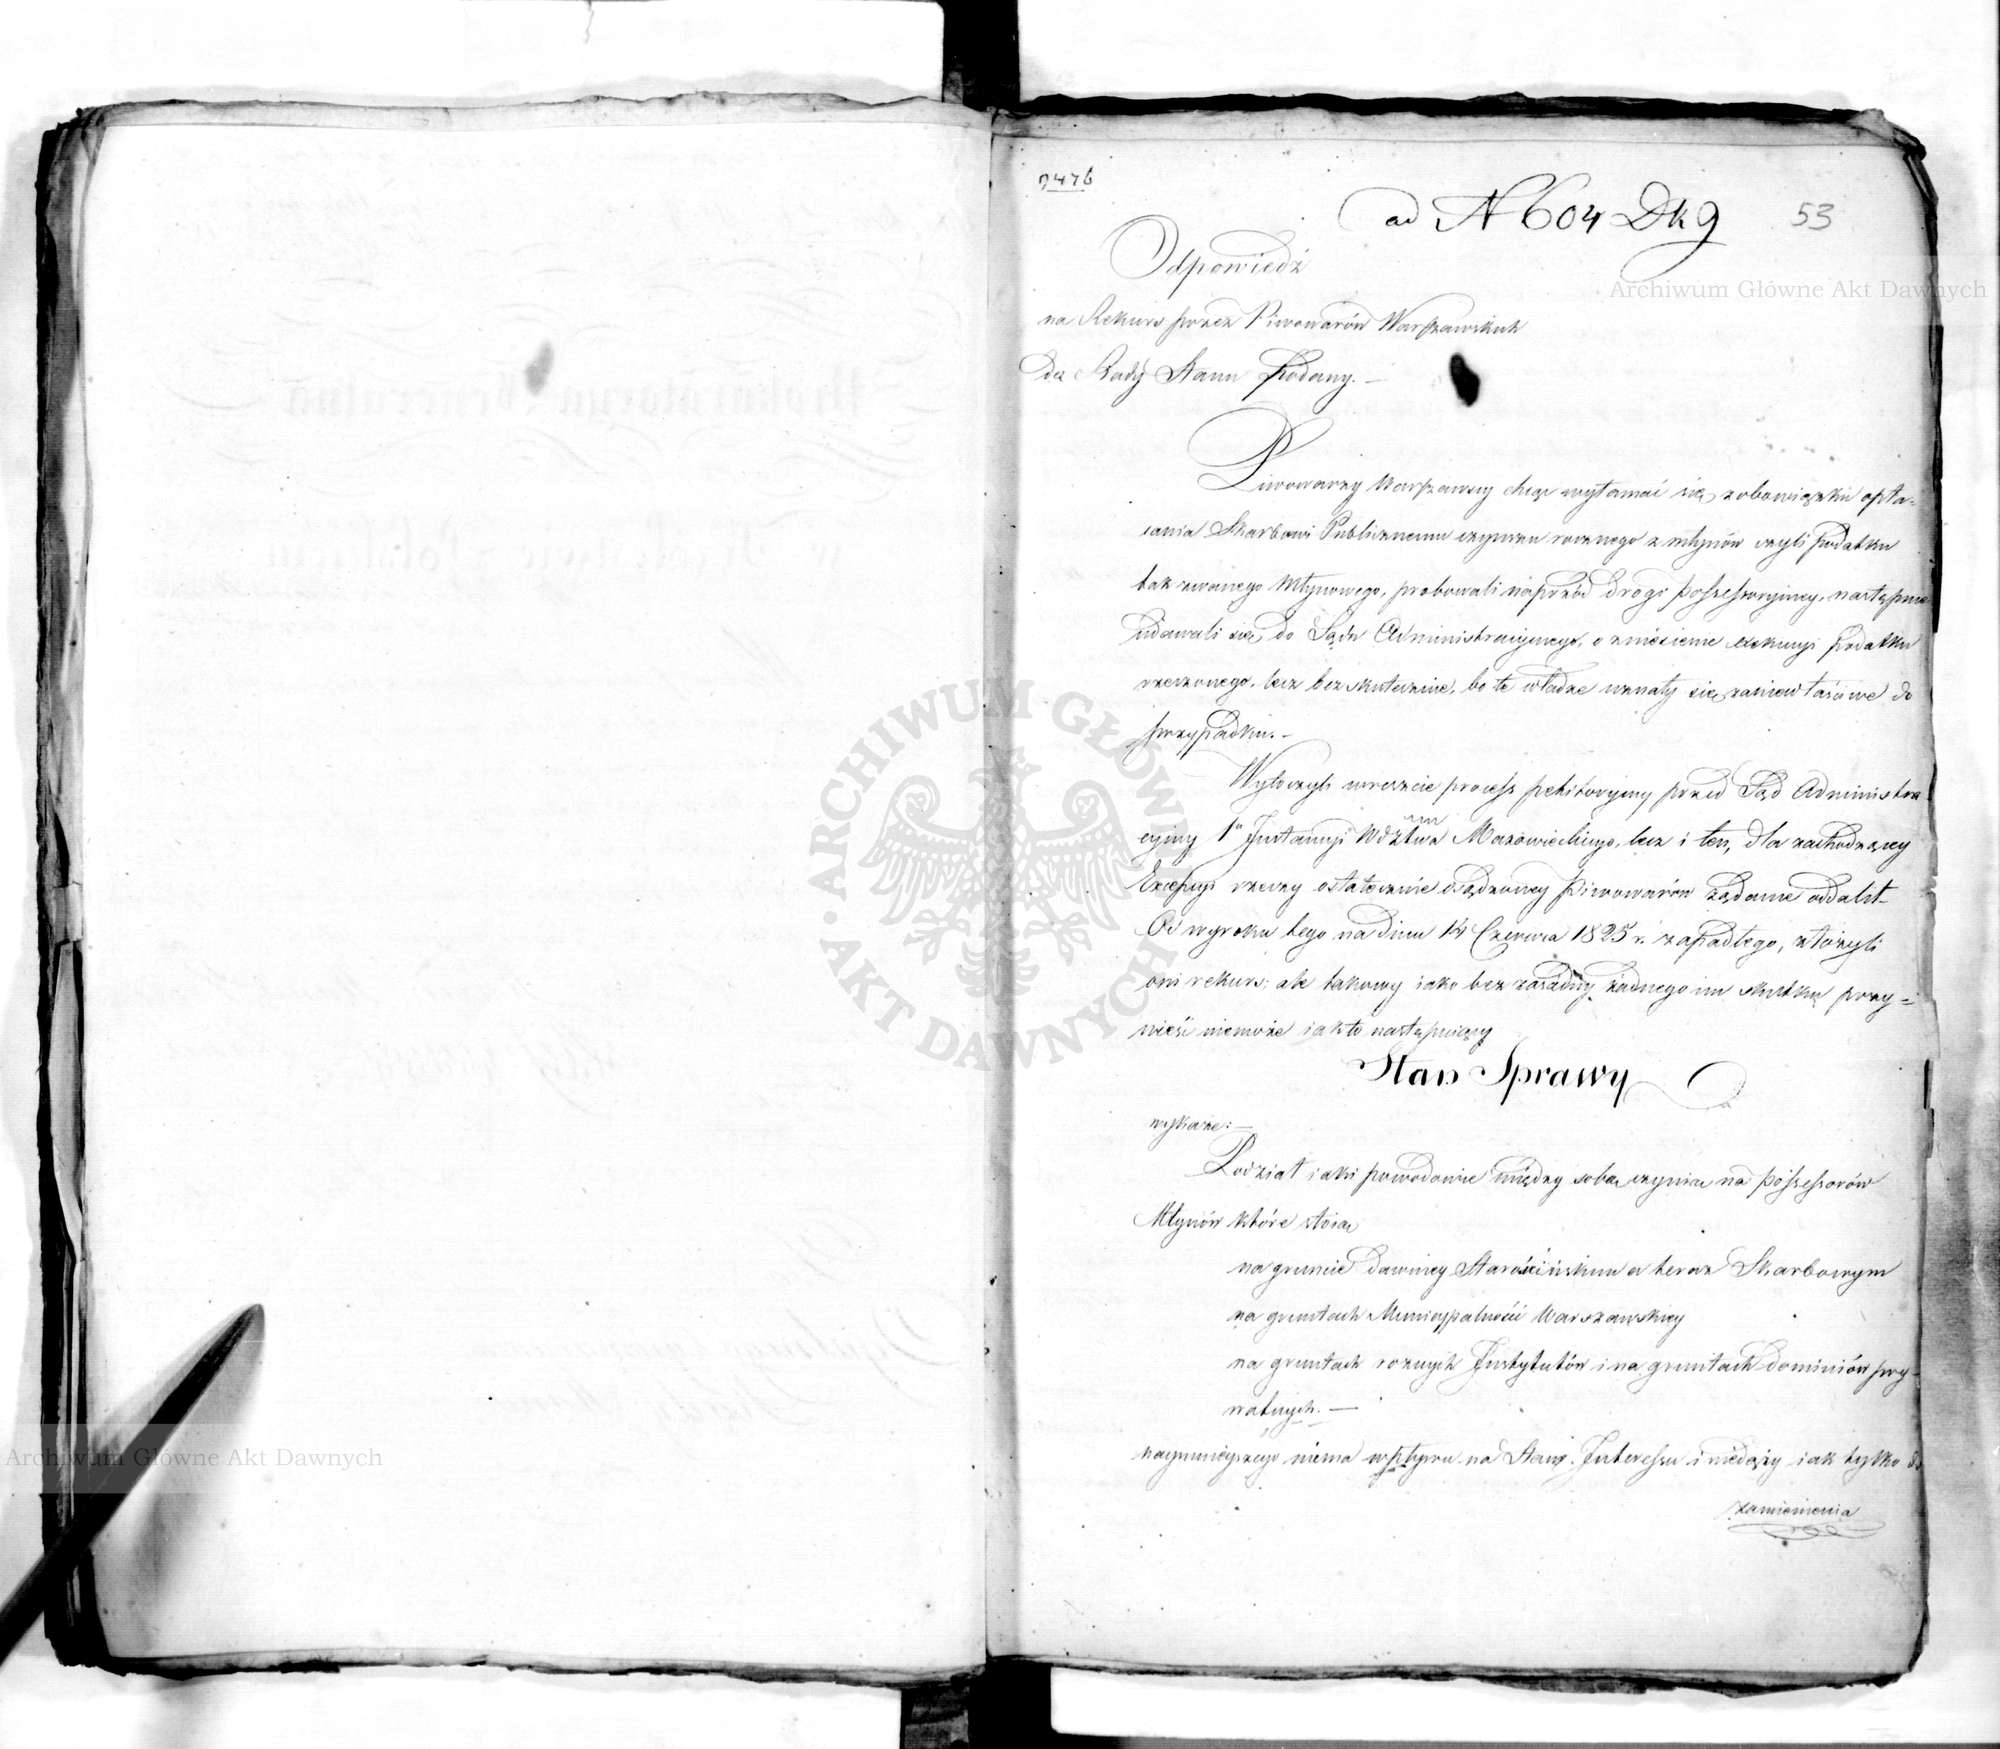 7476
ad N 604 Dkg
53
Odpowiedź
na Rekurs przez Piwowarów Warszawskich
do Rady Stanu Podany. —
Piwowarzy Warszawscy chcąc wyłamać się z obowiązku opła-
cania Skarbowi Publicznemu czynszu rocznego z młynów czyli podatku
tak zwanego Młynowego, probowali naprzód drogi possessoryjney, następnie
udawali się do Sądu Administracyjnego, o zniesienie exekucyi podatku
rzeczonego, lecz bezskutecznie, bo te władze uznały się za niewłaściwe do
przypadku. —
Wytoczyli wreszcie process petitoryjny przed Sąd Administra
cyjny 1ey Instancyi Wdztwa Mazowieckiego, lecz i ten, dla zachodzącey
Excepcyi rzeczy ostatecznie osądzoney Piwowarów żądanie oddalił.
Od wyroku tego na dniu 14 Czerwca 1825 r. zapadłego, założyli
oni rekurs; ale takowy iako bez zasadny, żadnego im skutku przy-
nieść niemoże iak to następuiący
Stan Sprawy
wykaże: —
Podział iaki powodowie między sobą czynią na possessorów
Młynów które stoią
na gruncie dawniey Starościńskim a teraz Skarbowym
na gruntach Municypalności Warszawskiey
na gruntach rożnych Instytutów i na gruntach dominiów pry-
watnych. —
naymnieyszego niema wpływu na Stan Interessu i niedąży iak tylko do
zamienienia
Archiwum Główne Akt Dawnych
Archiwum Główne Akt Dawnych
ARCHIWUM GŁÓWNE AKT DAWNYCH